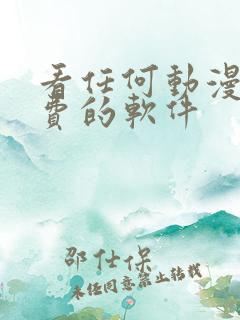 看任何動漫
費的軟件
邵仕保
未经同意禁止转载